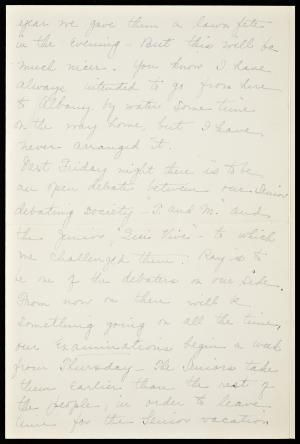 year we gave them a lawn fete
in the evening - But this will be
much nicer. You know I have
always intended to go from here
to Albany by water some time
on the way home, but I have
never arranged it.
Next Friday night there is to be
an open debate between our Senior
debating society - "T. and M." and
the Junior, "Qui Vive" - to which
we challenged them. Ray is to
be one of the debaters on our side.
From now on there will be
something going on all the time,
our Examinations begin a week
from Thursday - The Seniors take
them earlier than the rest of
the people, in order to leave
time for the Senior vacation